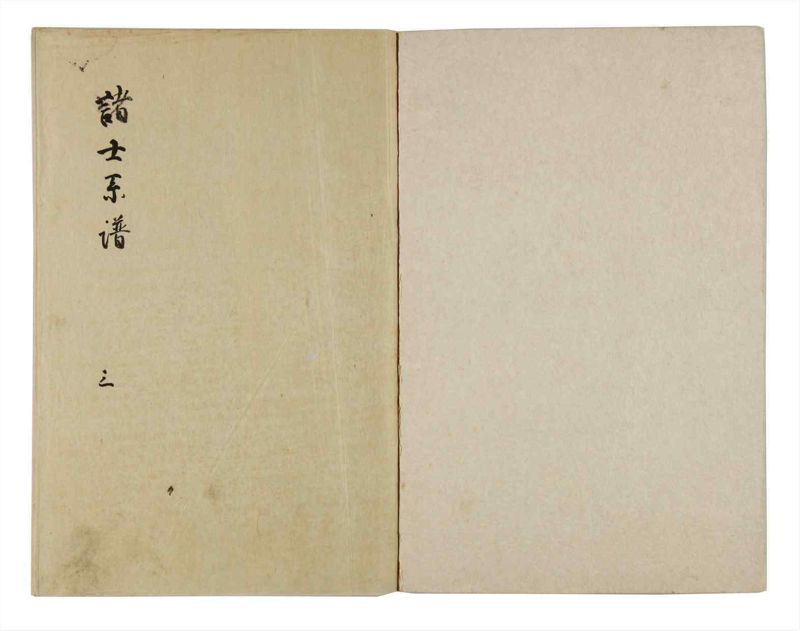 諸士系譜
三